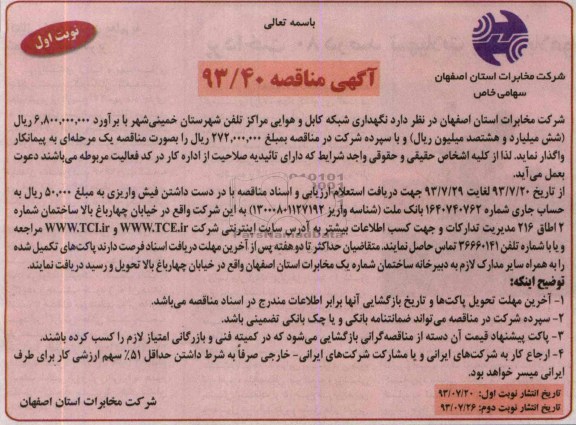 باسمه تعالی
نوبت اول
شرکت مخابرات استان اصفهان
سهامی خاص
آگهی مناقصه ۹۳/۴۰
شرکت مخابرات استان اصفهان در نظر دارد نگهداری شبکه کابل و هوایی مراکز تلفن شهرستان خمینی‌شهر با برآورد ۶,۸۰۰,۰۰۰,۰۰۰ ریال
(شش میلیارد و هشتصد میلیون ریال) و با سپرده شرکت در مناقصه بمبلغ ۲۷۲,۰۰۰,۰۰۰ ریال را بصورت مناقصه یک مرحله‌ای به پیمانکار
واگذار نماید. لذا از کلیه اشخاص حقیقی و حقوقی واجد شرایط که دارای تائیدیه صلاحیت از اداره کار در کد فعالیت مربوطه می‌باشند دعوت
بعمل می‌آید.
از تاریخ ۹۳/۷/۲۰ لغایت ۹۳/۷/۲۹ جهت دریافت استعلام ارزیابی و اسناد مناقصه با در دست داشتن فیش واریزی به مبلغ ۵۰,۰۰۰ ریال به
حساب جاری شماره ۱۶۴۰۷۴۰۷۶۲ بانک ملت (شناسه واریز ۱۳۰۰۰۸۰۱۱۲۷۱۹۲) به این شرکت واقع در خیابان چهارباغ بالا ساختمان شماره
۲ اطاق ۲۱۶ مدیریت تدارکات و جهت کسب اطلاعات بیشتر به آدرس سایت اینترنتی شرکت WWW.TCE.ir و WWW.TCI.ir مراجعه
و یا با شماره تلفن ۳۶۶۶۰۱۴۱ تماس حاصل نمایند. متقاضیان حداکثر تا دو هفته پس از آخرین مهلت دریافت اسناد فرصت دارند پاکت‌های تکمیل شده
را به همراه سایر مدارک لازم به دبیرخانه ساختمان شماره یک مخابرات استان اصفهان واقع در خیابان چهارباغ بالا تحویل و رسید دریافت نمایند.
توضیح اینکه:
۱- آخرین مهلت تحویل پاکت‌ها و تاریخ بازگشایی آنها برابر اطلاعات مندرج در اسناد مناقصه می‌باشد.
۲- سپرده شرکت در مناقصه می‌تواند ضمانتنامه بانکی و یا چک بانکی تضمینی باشد.
۳- پاکت پیشنهاد قیمت آن دسته از مناقصه‌گرانی بازگشایی می‌شود که در کمیته فنی و بازرگانی امتیاز لازم را کسب کرده باشند.
۴- ارجاع کار به شرکت‌های ایرانی و یا مشارکت شرکت‌های ایرانی- خارجی صرفاً به شرط داشتن حداقل ۵۱٪ سهم ارزشی کار برای طرف
ایرانی میسر خواهد بود.
تاریخ انتشار نوبت اول: ۹۳/۰۷/۲۰
تاریخ انتشار نوبت دوم: ۹۳/۰۷/۲۶
شرکت مخابرات استان اصفهان